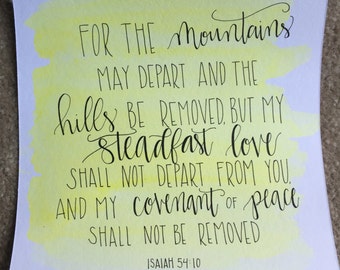 FOR THE mountains
MAY DEPART AND THE
hills BE REMOVED, BUT MY
steadfast love
SHALL NOT DEPART FROM YOU,
AND MY covenant OF peace
SHALL NOT BE REMOVED
ISAIAH 54:10